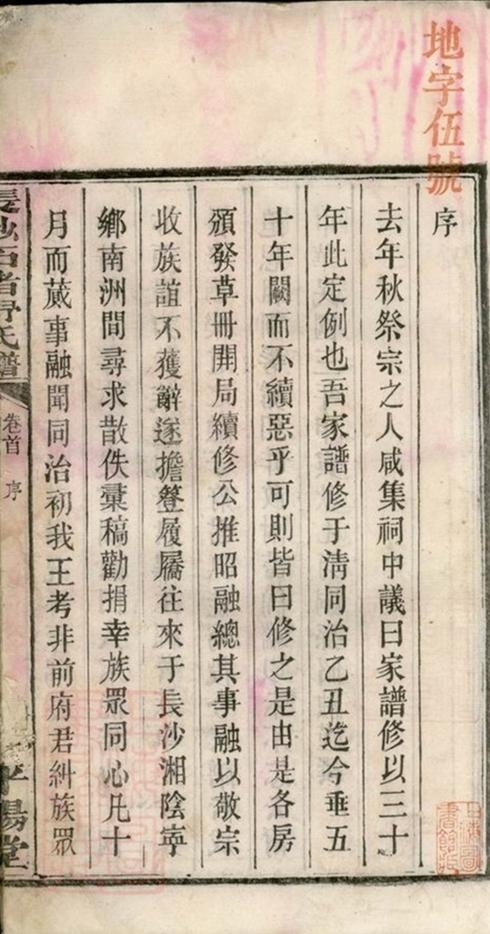 地字伍號
序
去年秋祭宗之人咸集祠中議曰家譜修以三十
年此定例也吾家譜修于清同治乙丑迄今垂五
十年闕而不續惡乎可則皆曰修之是由是各房
頒發草冊開局續修公推昭融總其事融以敬宗
收族誼不獲辭遂擔簦履屩往來于長沙湘陰寧
鄉南洲間尋求散佚彙稿勸捐幸族眾同心凡十
月而蕆事融聞同治初我王考非前府君糾族眾
長沙石渚尹氏譜
卷首
序
平陽堂